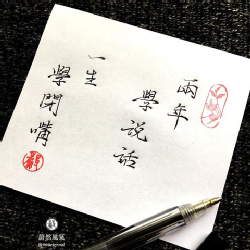 兩年
學說話
一生
學閉嘴